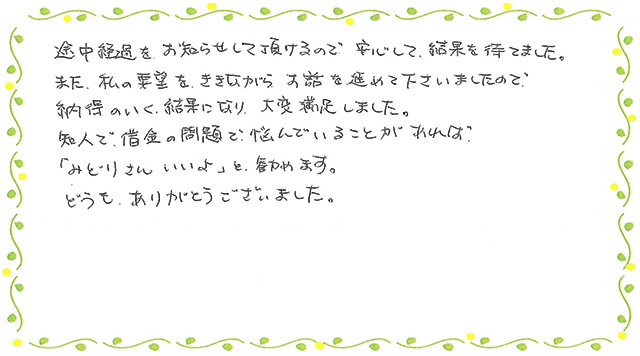 途中経過を、お知らせして頂けるので、安心して、結果を待てました。
また、私の要望を、ききながら、お話を進めて下さいましたので、
納得のいく、結果になり、大変満足しました。
知人で、借金の問題で、悩んでいることがあれば、
「みどりさん いいよ」と、勧めます。
どうも、ありがとうございました。